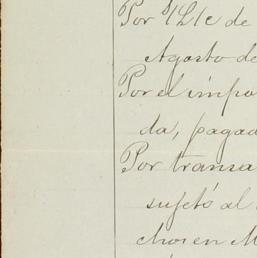 Por s/L/c de
Agosto de
Por el impo
da, pagad
Por transa
sujetó al
chos en M